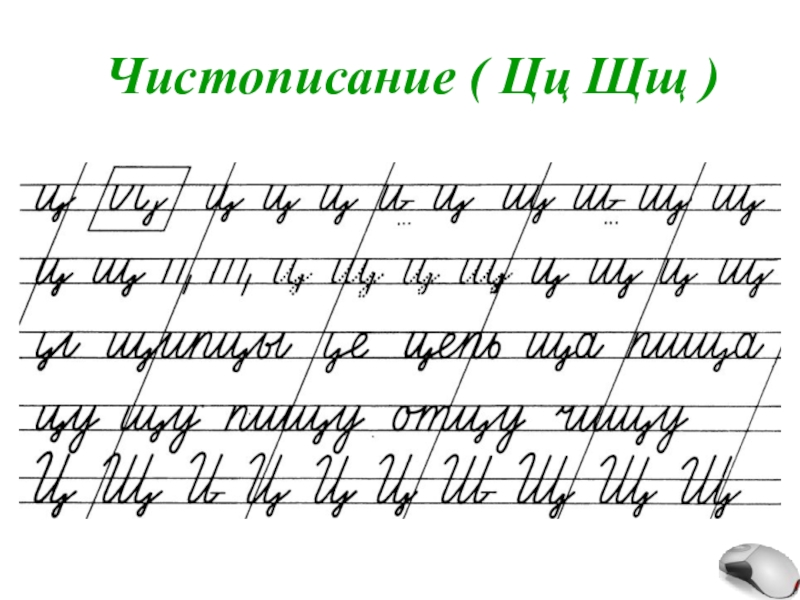 Чистописание ( Цц Щщ )
ц ц ц ц ц ц щ щ щ
ц щ ц щ ц щ ц щ ц щ
цы щипцы це цепь ща пища
цу щу пищу отцу чищу
Ц Щ Ц Ц Ц Щ Щ Щ